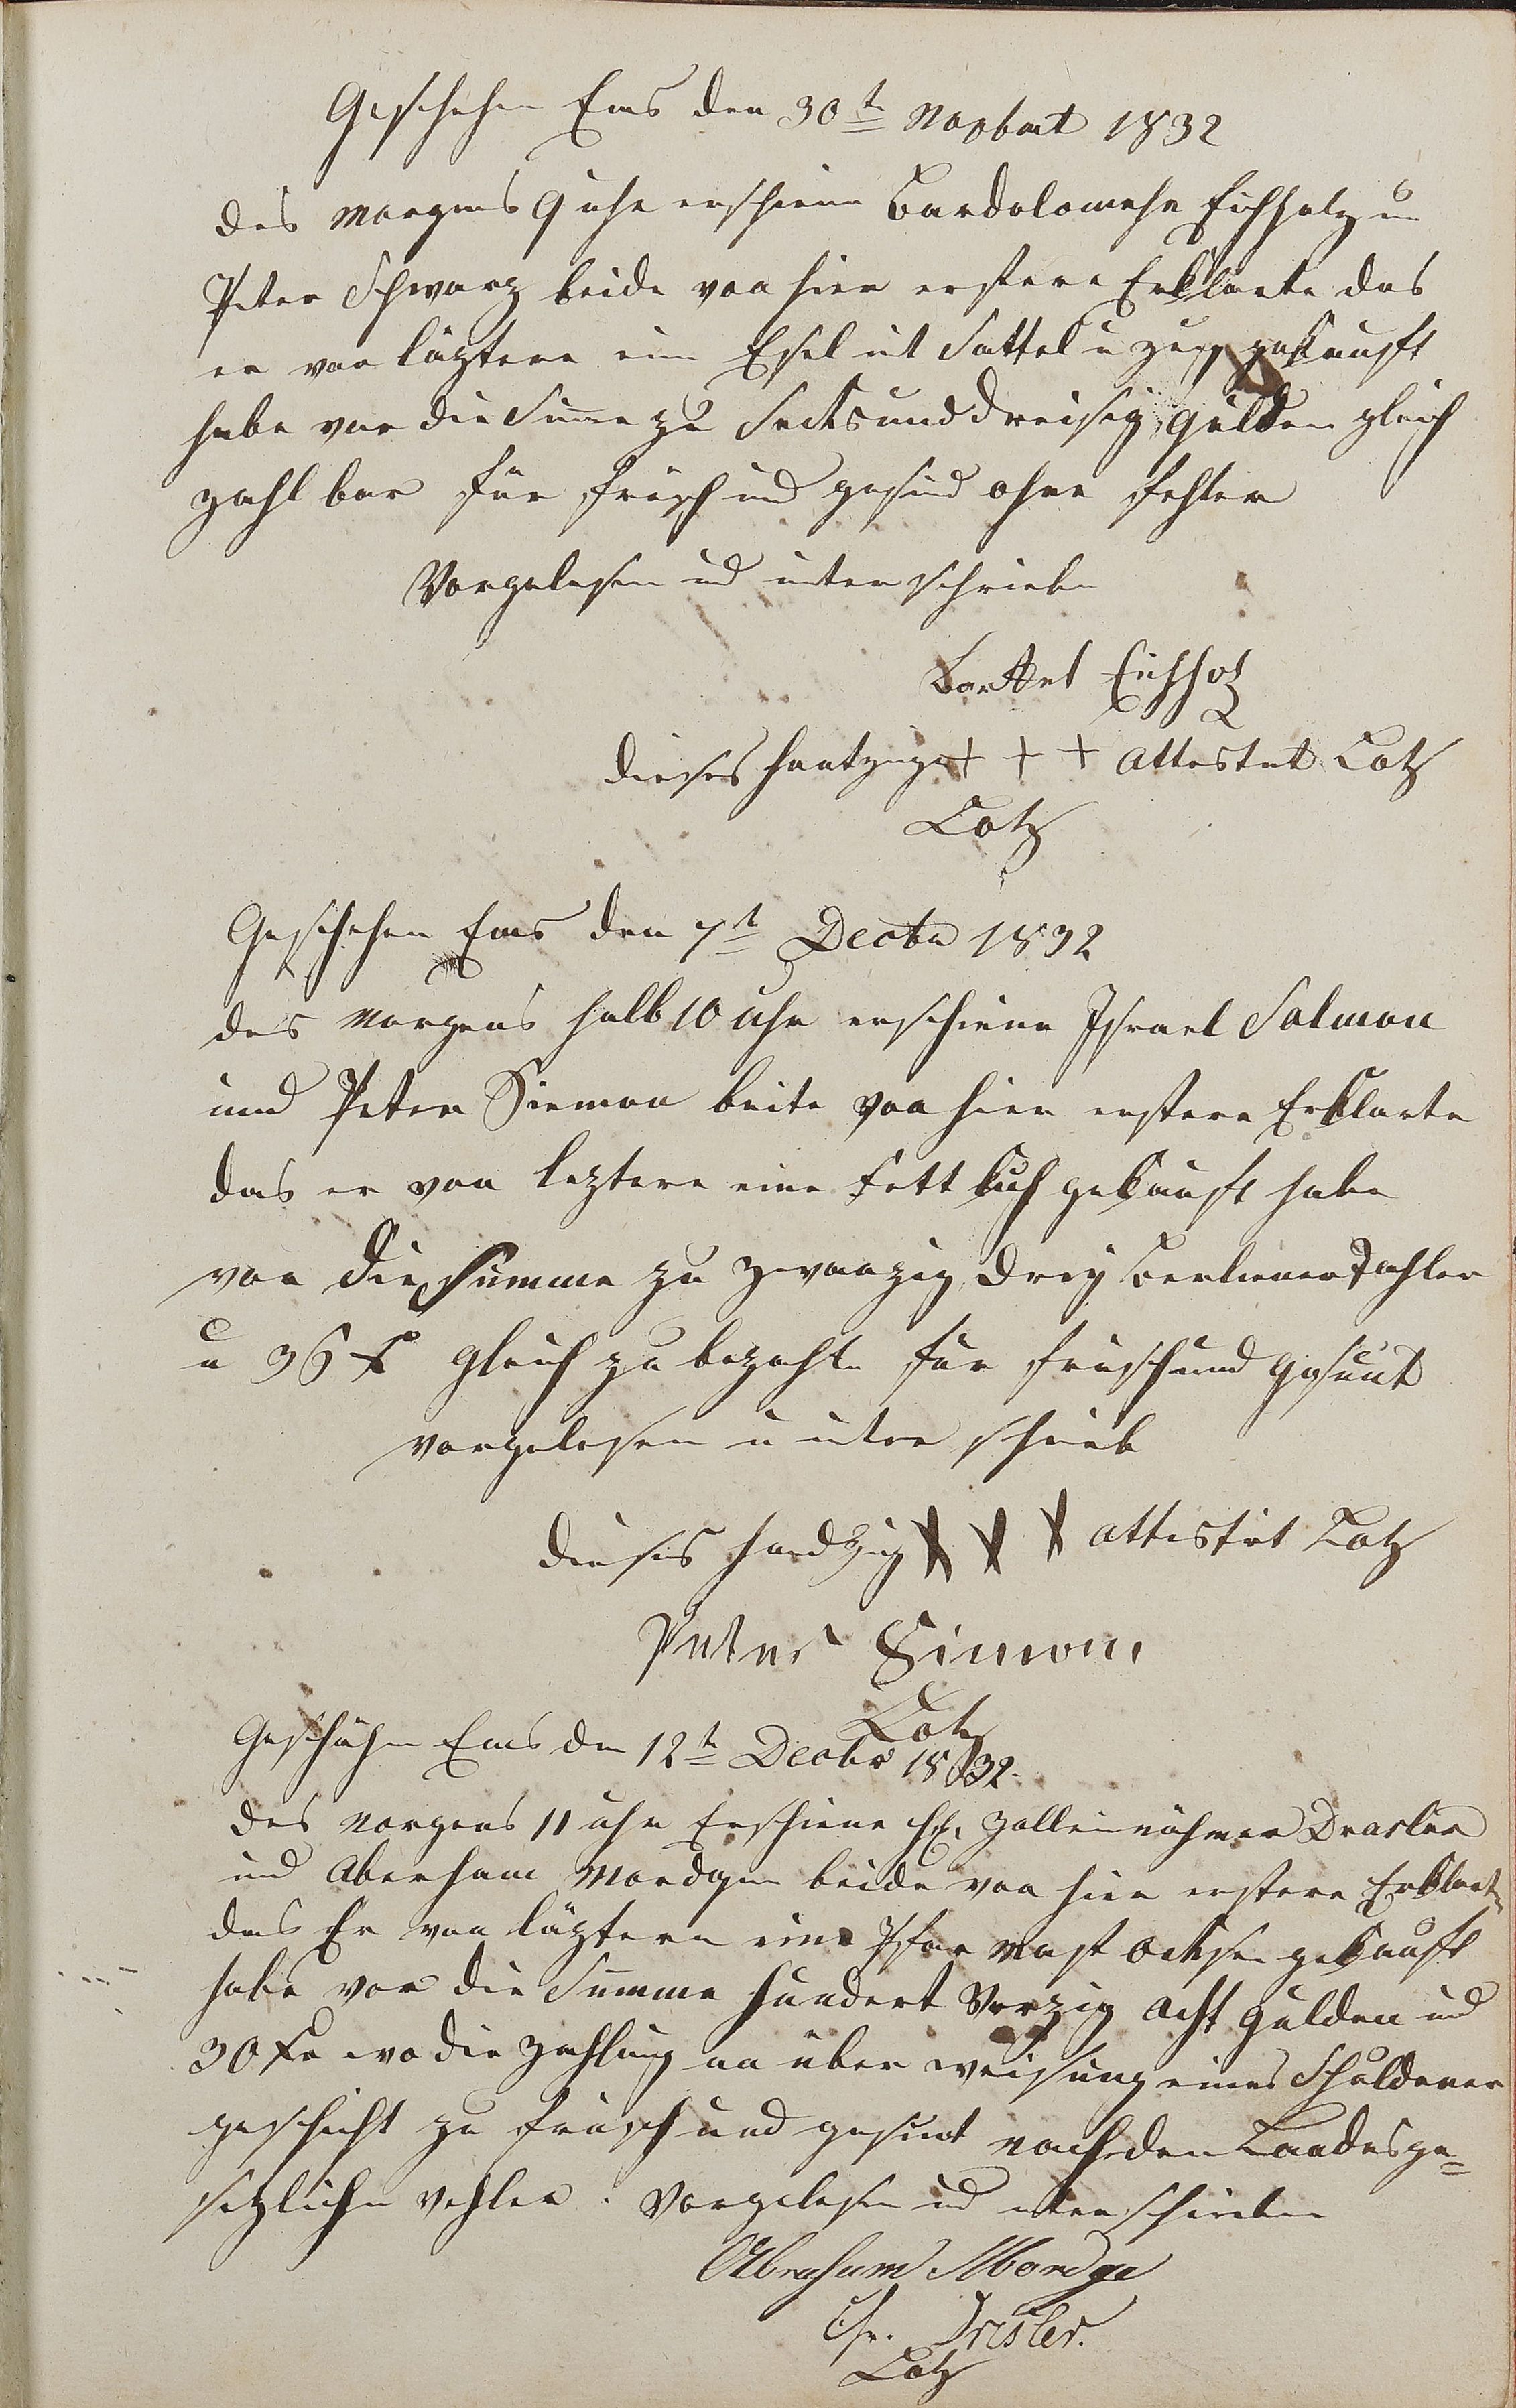 Geschehen Ems den 30t Novbnt 1832
des Morgens 9 uhr erschiene Bardolomehe Eichholz un
Peter Schwarz beide von hier erstere Erklarte das
er von läztere ein Esel mit Sattel u zeug gekauft
habe vor die Sume zu Sechsunddreisig Gulden gleich
zahl bar für frisch und gesund ohne fehler
Vorgelesen und unter schrieben
Barttel Eichholz
dieses hantzeige + + + attestet Lotz
Lotz
Geschehen Ems den 7t Decbr 1832
des Morgens halb 10 uhr erschiene Israel Salmon
und Peter Siemon beite von hier erstere Erklarte
das er von leztere eine Fett kuh gekauft habe
vor die Summe zu zwanzig drey Berliener Tahler
u 36 x gleich zu bezahle für frisch und gesunt
vorgelesen u unter schrieb
dieses handzeig X X X attestirt Lotz
Peter Simon
Lotz
Geschähen Ems den 12t Decbr 1832.
des Morgens 11 uhr Erschiene H. Zolleinnähmer Dresler
und Aberham Mordgen beide von hier erstere Erklarte
das Er von läztern eine Paar Mast ochsen gekauft
habe vor die Summe Hundert Verzig acht Gulden und
30 xr wo die zahlung an über weisung eines Schuldener
geschicht zu frisch und gesunt nach den Landesge=
setzlichen vehler. Vorgelesen und unterschrieben
Abraham Mordge
Chr. Dresler.
Lotz